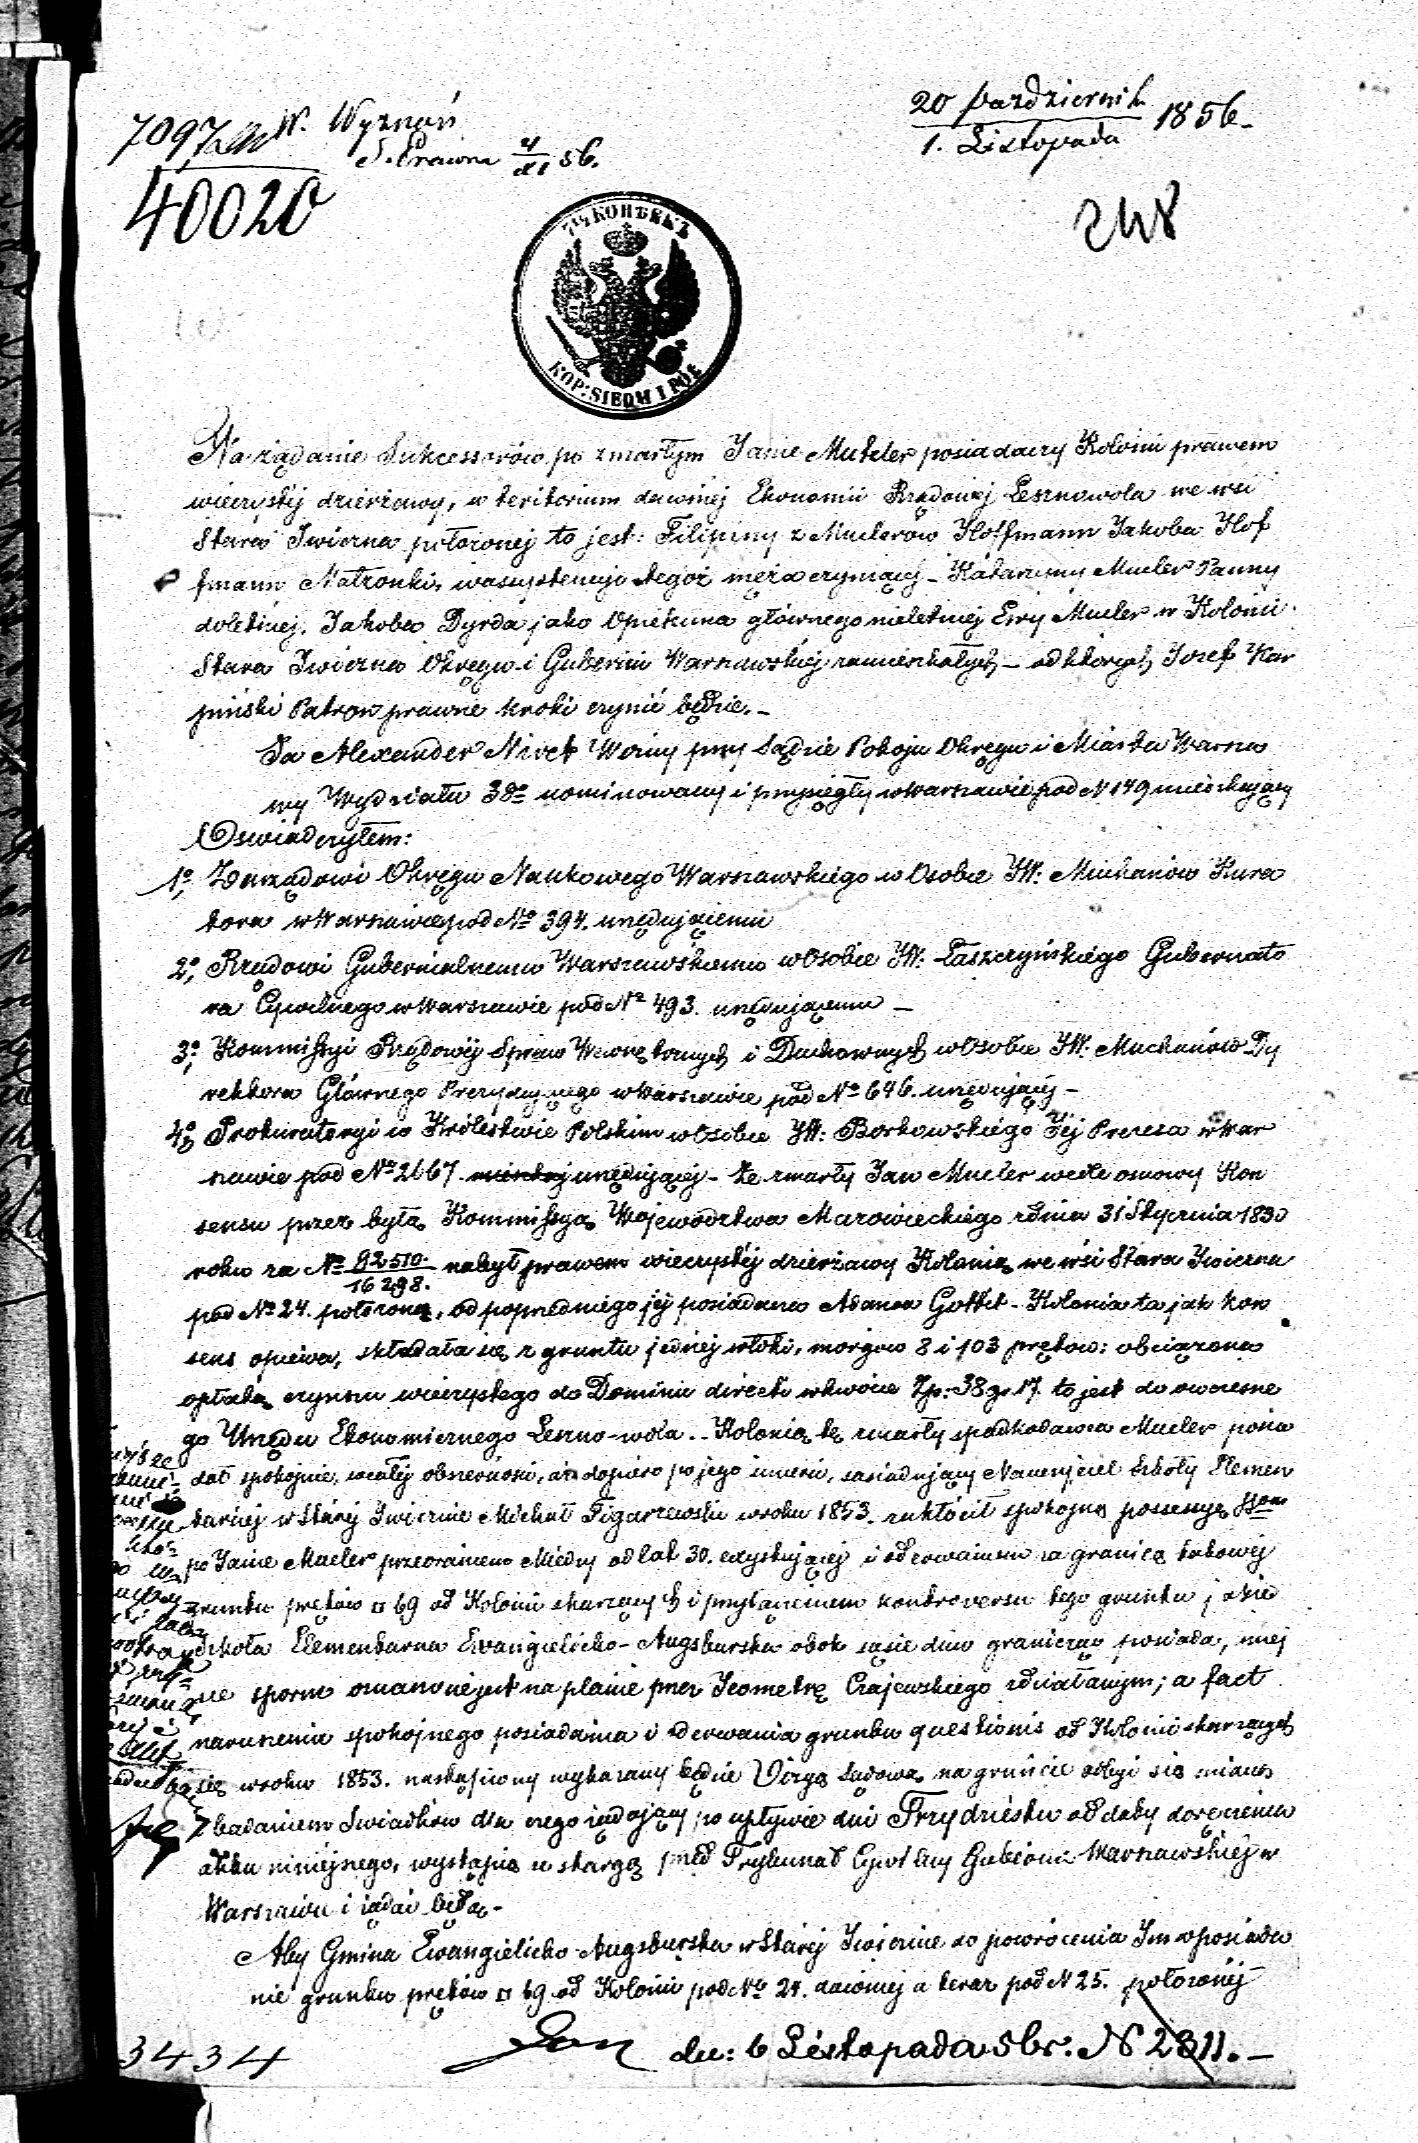 7097
40020
W. Wyznań
S. Prawna 4/XI 56.
20 Październik
1. Listopada 1856.
248
7½ КОПѢЕКЪ
KOP: SIEDM I PÓŁ
Na żądanie Sukcessorów po zmarłym Janie Mueler posiadaczy Kolonii prawem
wieczystéj dzierżawy, w teritorium dawniej Ekonomii Rządowej Lesznowola we wsi
Stara Iwiczna położonej to jest: Filipiny z Muelerów Hoffmann Jakoba Hof
fmann Małżonki, w assystencyi tegoż męża czyniącej – Katarzyny Mueler Panny
doletniej. Jakoba Dyrda jako Opiekuna głównego nieletniej Ewy Mueler w Kolonii
Stara Iwiczna Okręgu i Gubernii Warszawskiej zamieszkałych – od których Jozef Kar
piński Patron prawne kroki czynić będzie. –
Ja Alexander Nivet Woźny przy Sądzie Pokoju Okręgu i Miasta Warsza
wy Wydziału 3go nominowany i przysięgły w Warszawie pod N 149 mieszkający
Oświadczyłem:
1o, Zarządowi Okręgu Naukowego Warszawskiego w Osobie JW. Muchanów Kura
tora w Warszawie pod No 394. urzędującemu
2o, Rządowi Gubernialnemu Warszawskiemu w Osobie JW. Łaszczyńskiego Gubernato
ra Cywilnego w Warszawie pod No 493. urzędującemu –
3o, Kommissyi Rządowéj Spraw Wewnętrznych i Duchownych w Osobie JW. Muchanów Dy
rektora Głównego Prezydującego w Warszawie pod No 646. urzędującéj –
4o, Prokuratoryi w Królestwie Polskim w Osobie JW. Borkowskiego Jéj Prezesa w War
szawie pod No 2667. urzędującej – Że zmarły Jan Mueler wedle osnowy Kon
sensu przez byłą Kommissyą Województwa Mazowieckiego z dnia 31 Stycznia 1830
roku za No 92510/16298. nabył prawem wieczystéj dzierżawy Kolonią we wsi Stara Iwiczna
pod No 24. położoną, od poprzedniego jéj posiadacza Adama Gottlit – Kolonia ta jak kon
sens opiewa, składała się z gruntu jednéj włóki, morgów 8 i 103 prętów: obciążona
opłatą czynszu wieczystego do Dominii directi w kwocie Zp: 38 gr 17. to jest do owczesne
go Urzędu Ekonomicznego Leszno-wola. – Kolonią tę zmarły spadkodawca Mueler posia
dał spokojnie, w całéj obszerności, aż dopiero po jego śmierci, sąsiadujący Nauczyciel Szkoły Elemen
tarnej w Staréj Iwicznie Michał Figarzewski w roku 1853. zakłócił spokojną possessyę
po Janie Mueler przeoraniem Miedzy od lat 30. exystującéj i oderwaniem za granicą takowéj
gruntu prętów □ 69 od Kolonii skarżących i przyłączeniem kontroversu tego gruntu jakie
Szkoła Elementarna Ewangielicko-Augsburska obok sąsiedzko granicząc posiada, miej
sce sporne oznaczone jest na planie przez Jeometrę Czajewskiego zdziałanym; a fact
naruszenia spokojnego posiadania i oderwania gruntu questionis od Kolonii skarżących
się w roku 1853. nastąpiony wykazany będzie Wizyą sądową na gruncie odbyć się mianą
z badaniem Swiadków dla czego żądający po upływie dni Trzydziestu od daty doręczenia
aktu niniejszego, wystąpią ze skargą przed Trybunał Cywilny Gubernii Warszawskiéj w
Warszawie i żądać będą. –
Aby Gmina Ewangielicko-Augsburska w Staréj Iwicznie do powrócenia Im w posiada
nie gruntu prętów □ 69 od Kolonii pod No 24. dawniej a teraz pod N 25. położonéj
3434
dn: 6 Listopada 56r. N 2311. –